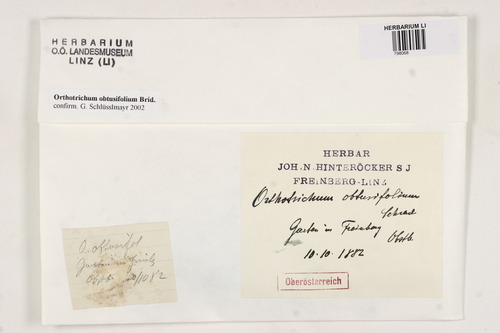 HERBARIUM
O.Ö. LANDESMUSEUM
LINZ (LI)
HERBARIUM LI
Orthotrichum obtusifolium Brid.
confirm. G. Schlüsslmayr 2002
HERBAR
JOH. N. HINTERÖCKER S J
FREINBERG-LINZ
Orthotrichum obtusifolium
Schrad
Garten in Freinberg
Obstb.
10.10.1882
Oberösterreich
O. obtusifol
Garten in
Obstb. 10/10 82